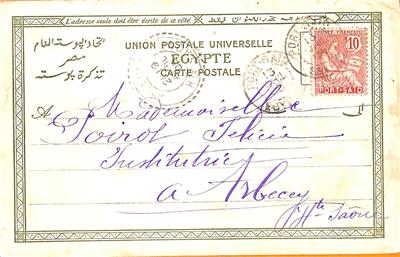 L'adresse seule doit être écrite de ce côté.
UNION POSTALE UNIVERSELLE
EGYPTE
CARTE POSTALE
اتحاد البوستة العام
مصر
تذكرة بوستة
10
PORT-SAID
A Mademoiselle
Poirot Félicie
Institutrice
a Arbecey
Hte Saône